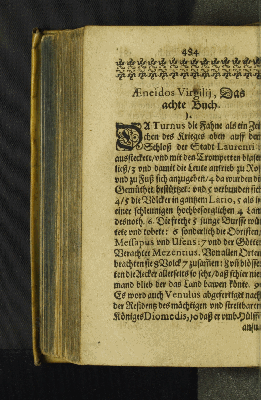 484
Æneidos Virgilij, Das
achte Buch.
1.
DA Turnus die Fahne als ein Zei
chen des Krieges oben auff der
Schloß der Stadt Laurenti
aussteckete, vnd mit den Trompetten blasen
ließ/3 vnd damit die Leute antrieb zu Roß
vnd zu Fuß sich anzugeben/4 da wurden die
Gemühter bestürtzet: vnd 5 verbunden sich
4/5 die Völcker in gantzem Latio, 5 als in
einer schleunigen hochbesorglichen 4 Lan
desnoth. 6. Die freche 5 junge Bursse wü
tete vnd tobete: 6 sonderlich die Obristen/
Messapus vnd Ufens: 7 vnd der Götter
Verachter Mezentius. Von allen Orten
brachten sie 8 Volck 7 zusamen: 8 vñ blösse
ten die Aecker allerseits so sehr/daß schier nie
mand blieb der das Land bawen könte. 9
Es ward auch Venulus abgefertiget nach
der Residentz des mächtigen vnd streitbaren
Königes Diomedis, 10 daß er vmb Hülffe